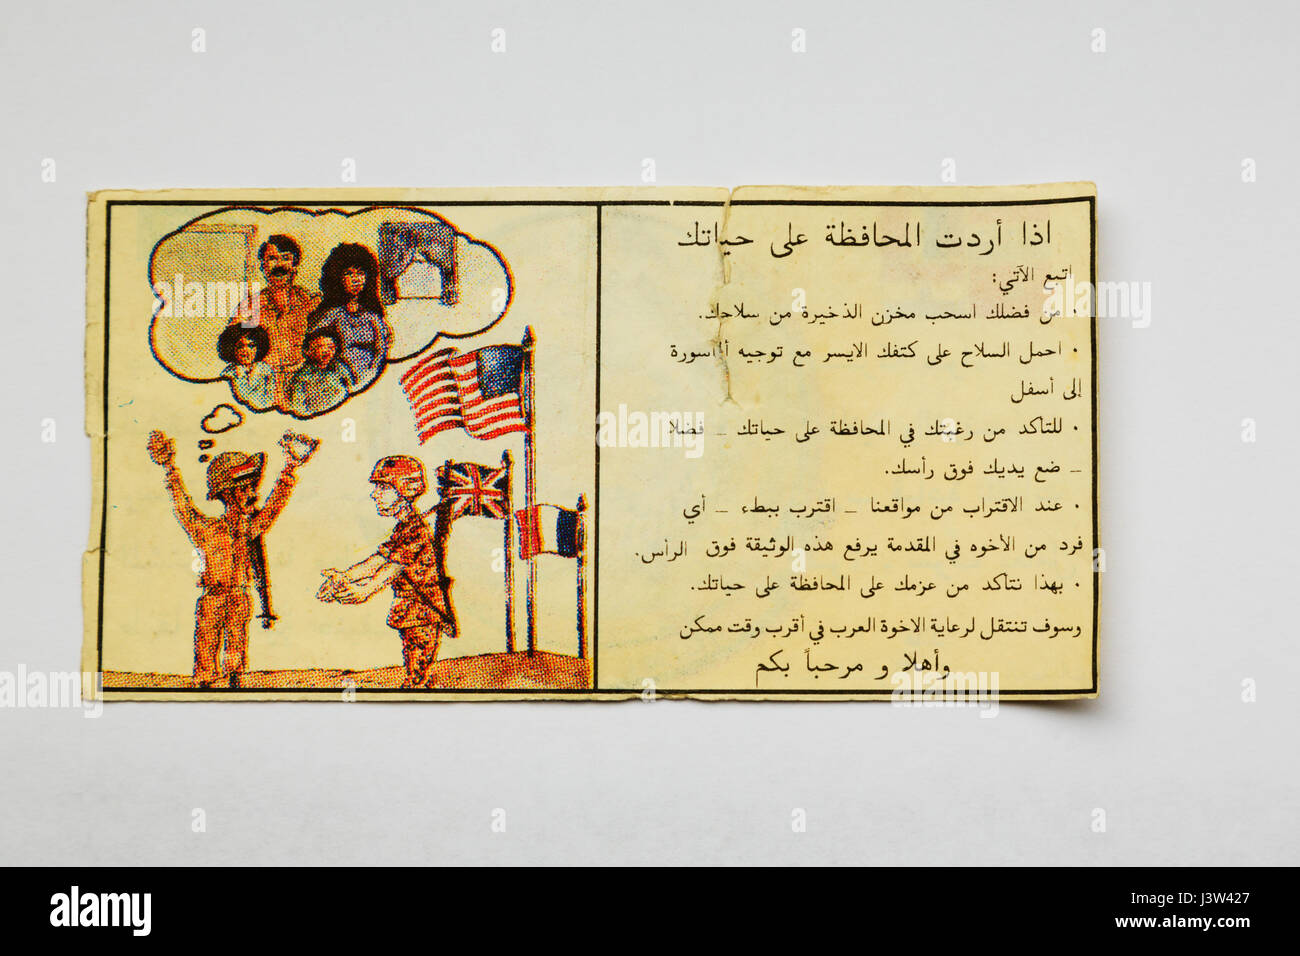 اذا أردت المحافظة على حياتك
اتبع الآتي:
· من فضلك اسحب مخزن الذخيرة من سلاحك.
· احمل السلاح على كتفك الايسر مع توجيه
إلى أسفل
· للتاكد من رغبتك في المحافظة على حياتك _ فضلا
_ ضع يديك فوق رأسك.
· عند الاقتراب من مواقعنا _ اقترب ببطء _ أي
فرد من الأخوه في المقدمة يرفع هذه الوثيقة فوق الرأس.
· بهذا نتاكد من عزمك على المحافظة على حياتك.
وسوف تنتقل لرعاية الاخوة العرب في أقرب وقت ممكن
وأهلا و مرحباً بكم
a alamy stock photo
alamy
Image ID: J3W427
www.alamy.com